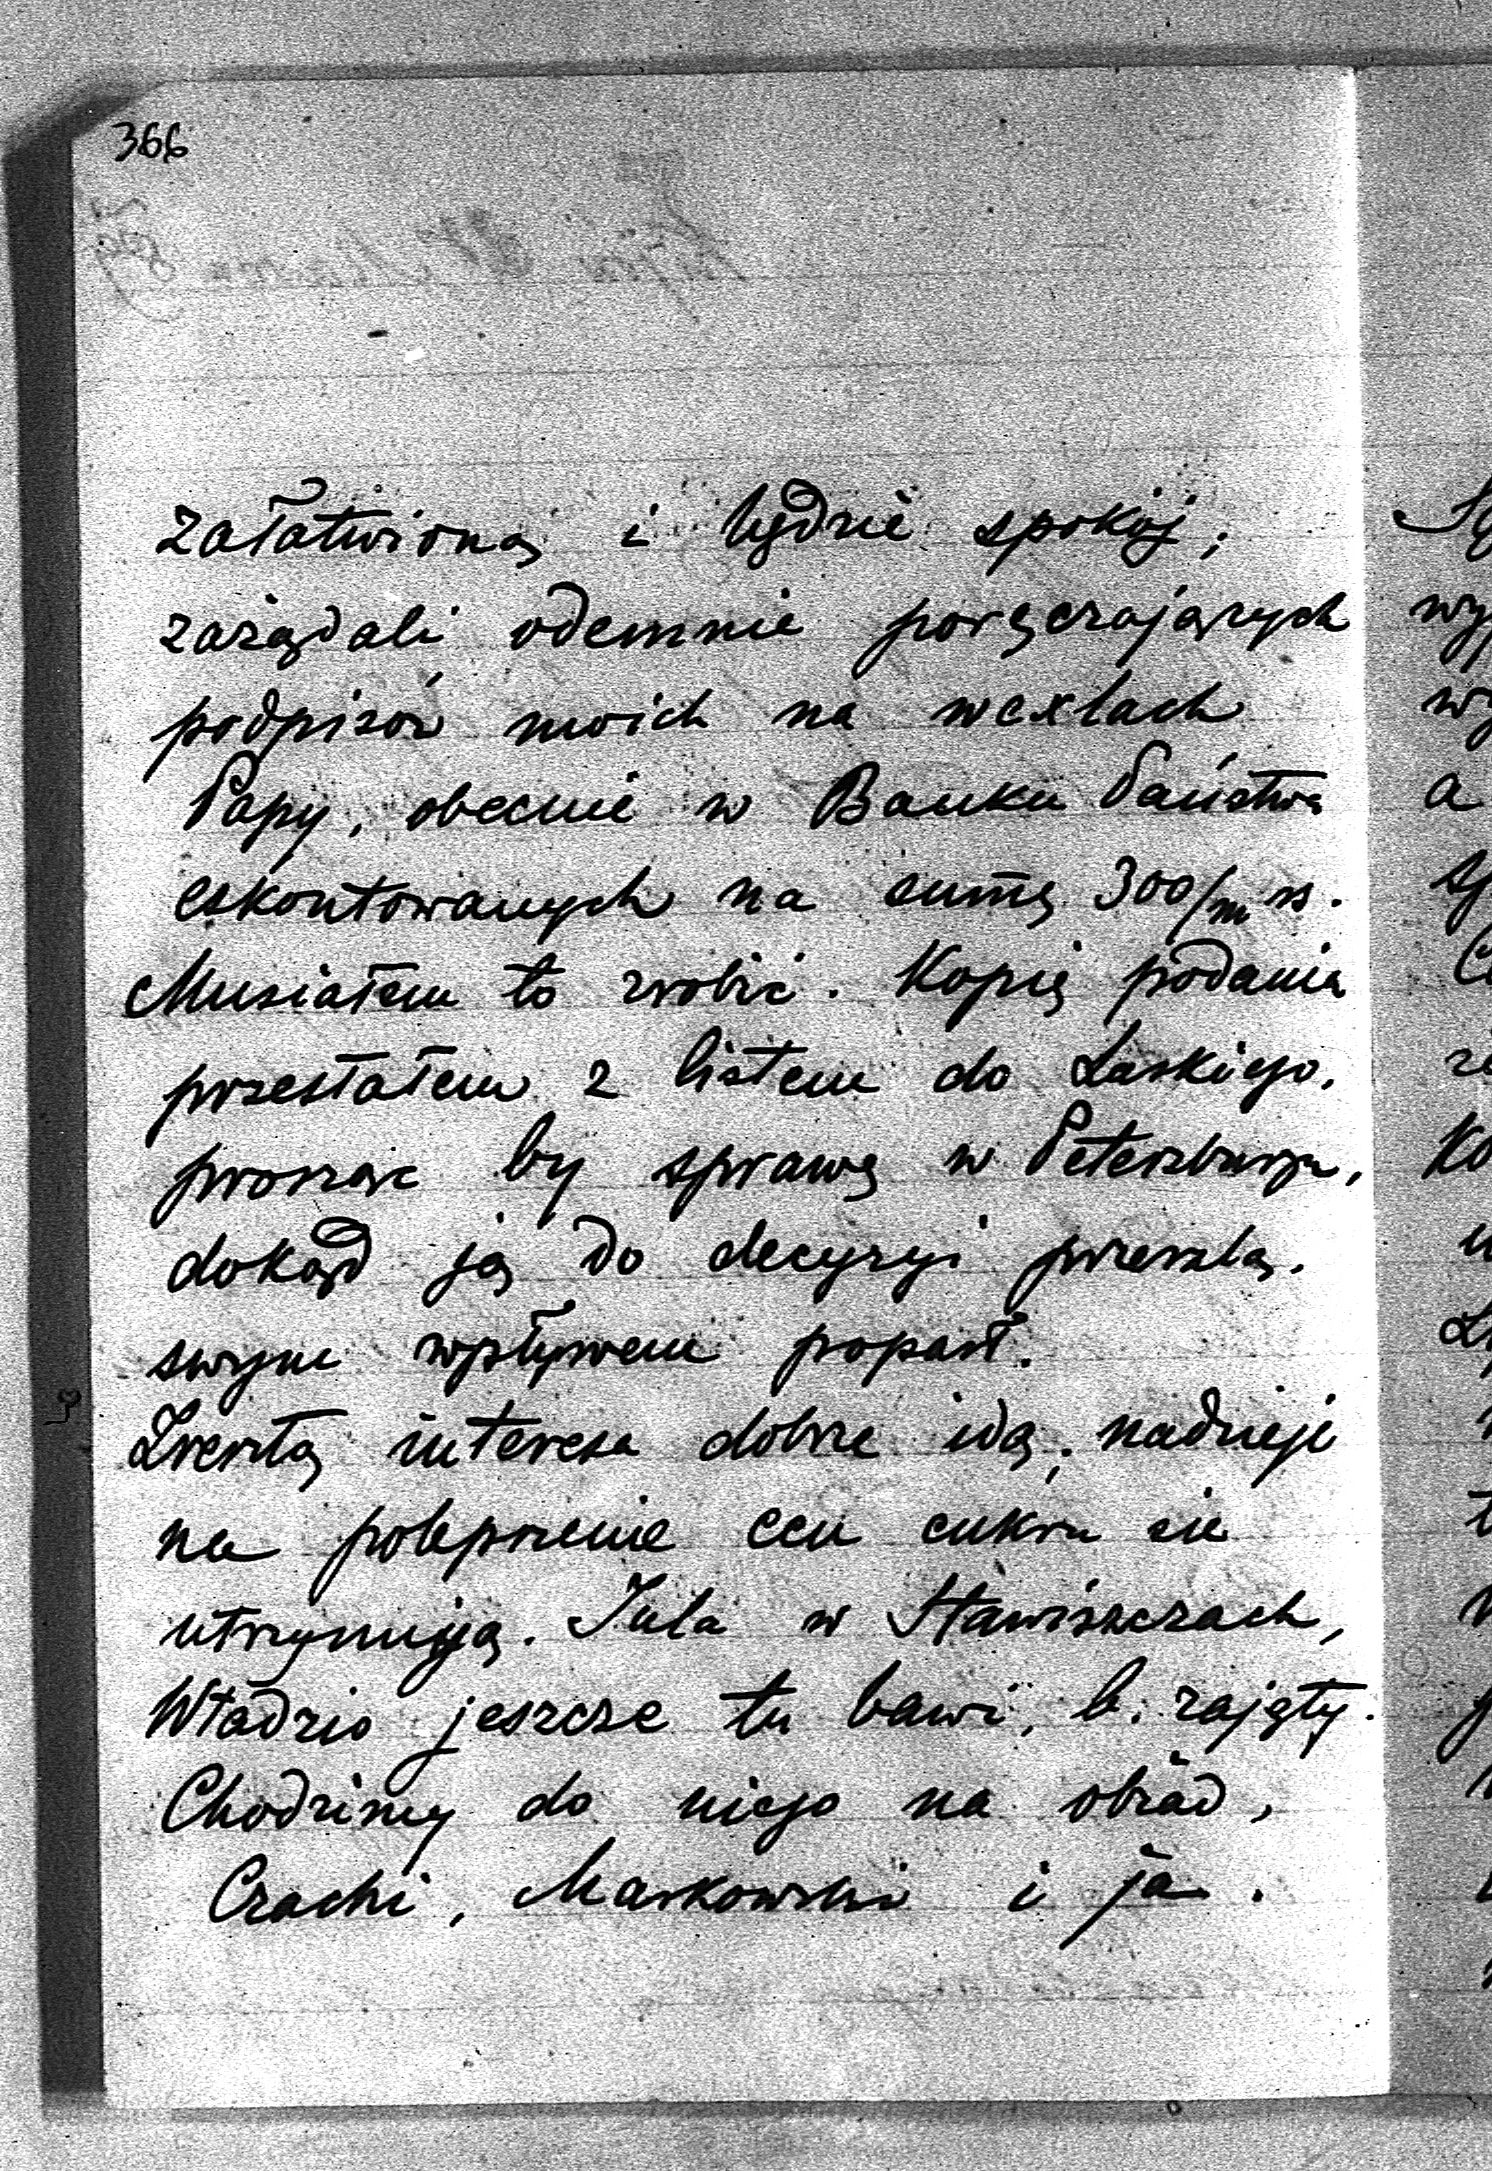 366
załatwioną i będzie spokój;
zażądali odemnie poręczających
podpisów moich na wexlach
Papy, obecnie w Banku Państwa
eskontowanych na sumę 300/m rs.
Musiałem to zrobić. Kopię podania
przesłałem z listem do Laskiego,
prosząc by sprawę w Petersburgu,
dokąd ją do decyzyi przeszlą,
swym wpływem poparł.
Zresztą interesa dobrze idą; nadzieje
na polepszenie cen cukru się
utrzymują. Jula w Stawiszczach,
Władzio jeszcze tu bawi, b. zajęty.
Chodzimy do niego na obiad,
Czacki, Markowski i ja.